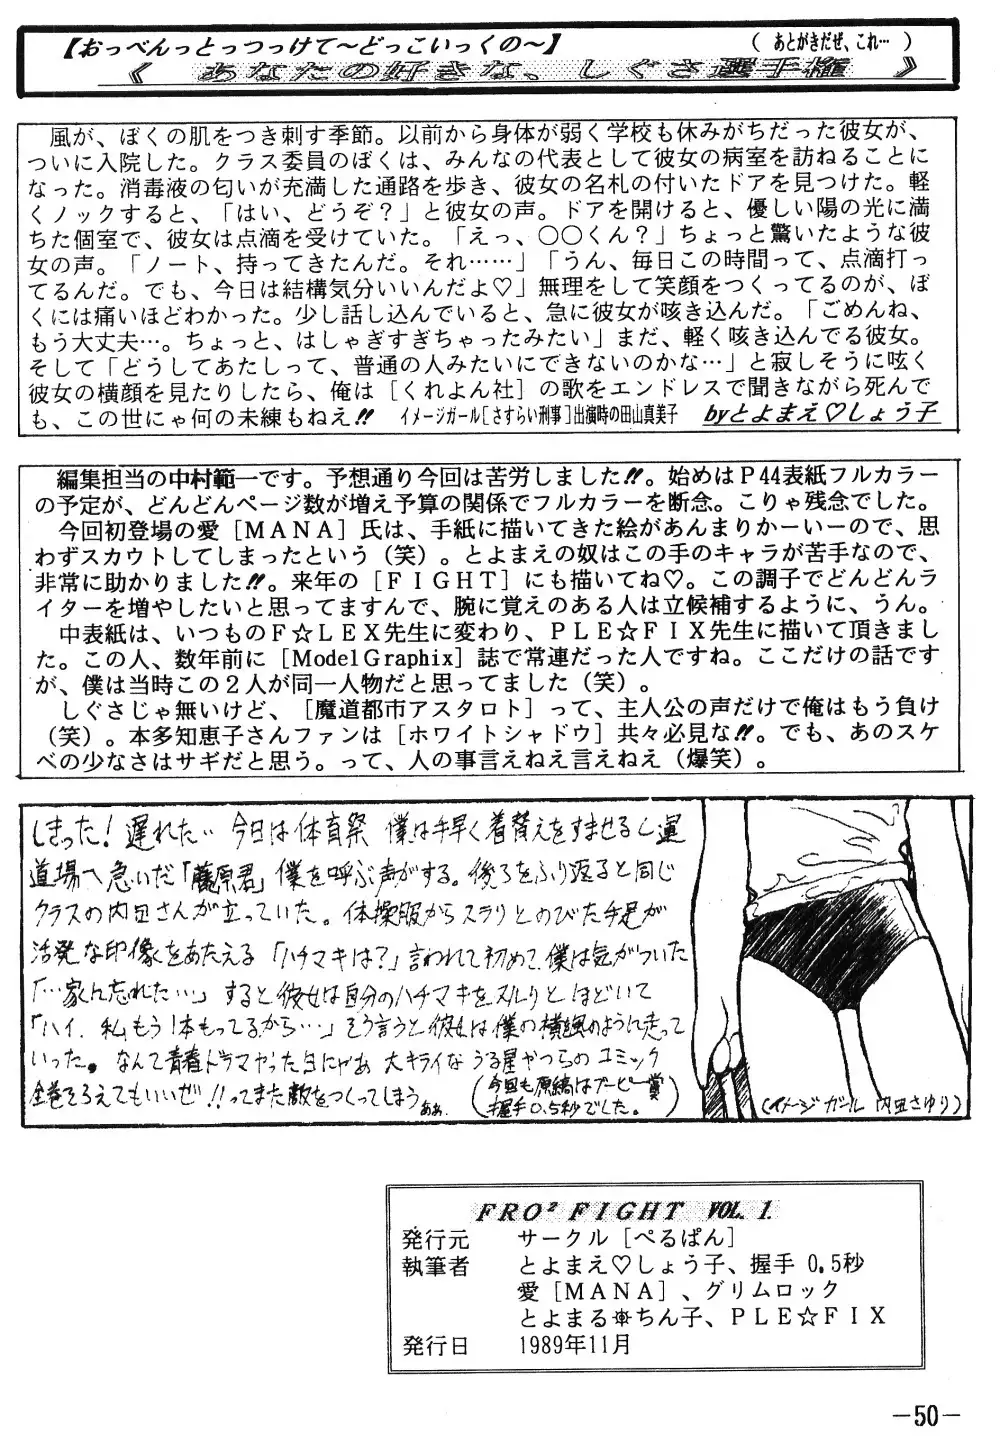 【おっべんっとっつっけて～どっこいっくの～】
( あとがきだぜ、これ… )
《 あなたの好きな、しぐさ選手権 》
風が、ぼくの肌をつき刺す季節。以前から身体が弱く学校も休みがちだった彼女が、
ついに入院した。クラス委員のぼくは、みんなの代表として彼女の病室を訪ねることに
なった。消毒液の匂いが充満した通路を歩き、彼女の名札の付いたドアを見つけた。軽
くノックすると、「はい、どうぞ？」と彼女の声。ドアを開けると、優しい陽の光に満
ちた個室で、彼女は点滴を受けていた。「えっ、〇〇くん？」ちょっと驚いたような彼
女の声。「ノート、持ってきたんだ。それ……」「うん、毎日この時間って、点滴打っ
てるんだ。でも、今日は結構気分いいんだよ♡」無理をして笑顔をつくってるのが、ぼ
くには痛いほどわかった。少し話し込んでいると、急に彼女が咳き込んだ。「ごめんね、
もう大丈夫…。ちょっと、はしゃぎすぎちゃったみたい」まだ、軽く咳き込んでる彼女。
そして「どうしてあたしって、普通の人みたいにできないのかな…」と寂しそうに呟く
彼女の横顔を見たりしたら、俺は［くれよん社］の歌をエンドレスで聞きながら死んで
も、この世にゃ何の未練もねえ!! イメージガール［さすらい刑事］出演時の田山真美子 byとよまえ♡しょう子
編集担当の中村範一です。予想通り今回は苦労しました!!。始めはＰ44表紙フルカラー
の予定が、どんどんページ数が増え予算の関係でフルカラーを断念。こりゃ残念でした。
今回初登場の愛［ＭＡＮＡ］氏は、手紙に描いてきた絵があんまりかーいーので、思
わずスカウトしてしまったという（笑）。とよまえの奴はこの手のキャラが苦手なので、
非常に助かりました!!。来年の［ＦＩＧＨＴ］にも描いてね♡。この調子でどんどんラ
イターを増やしたいと思ってますんで、腕に覚えのある人は立候補するように、うん。
中表紙は、いつものＦ☆ＬＥＸ先生に変わり、ＰＬＥ☆ＦＩＸ先生に描いて頂きまし
た。この人、数年前に［Model Graphix］誌で常連だった人ですね。ここだけの話です
が、僕は当時この２人が同一人物だと思ってました（笑）。
しぐさじゃ無いけど、［魔道都市アスタロト］って、主人公の声だけで俺はもう負け
（笑）。本多知恵子さんファンは［ホワイトシャドウ］共々必見な!!。でも、あのスケ
ベの少なさはサギだと思う。って、人の事言えねえ言えねえ（爆笑）。
しまった！遅れた… 今日は体育祭 僕は手早く着替えをすませると運
道場へ急いだ「藤原君」僕を呼ぶ声がする。後ろをふり返ると同じ
クラスの内田さんが立っていた。体操服からスラリとのびた手足が
活発な印像をあたえる「ハチマキは？」言われて初めて僕は気がついた
「…家に忘れた…」すると彼女は自分のハチマキをスルリとほどいて
「ハイ、私もう1本もってるから…」そう言うと彼女は僕の横を風のように走って
いった。なんて青春ドラマやった日にゃあ大キライなうる星やつらのコミック
全巻そろえてもいいぜ!!ってまた敵をつくってしまうああ.
(今回も原稿はブービー賞
握手0.5秒でした。)
(イメージガール 内田さゆり)
FRO² FIGHT VOL. 1.
発行元 サークル［ぺるぱん］
執筆者 とよまえ♡しょう子、握手 0.5秒
愛［ＭＡＮＡ］、グリムロック
とよまる☸ちん子、ＰＬＥ☆ＦＩＸ
発行日 1989年11月
－50－